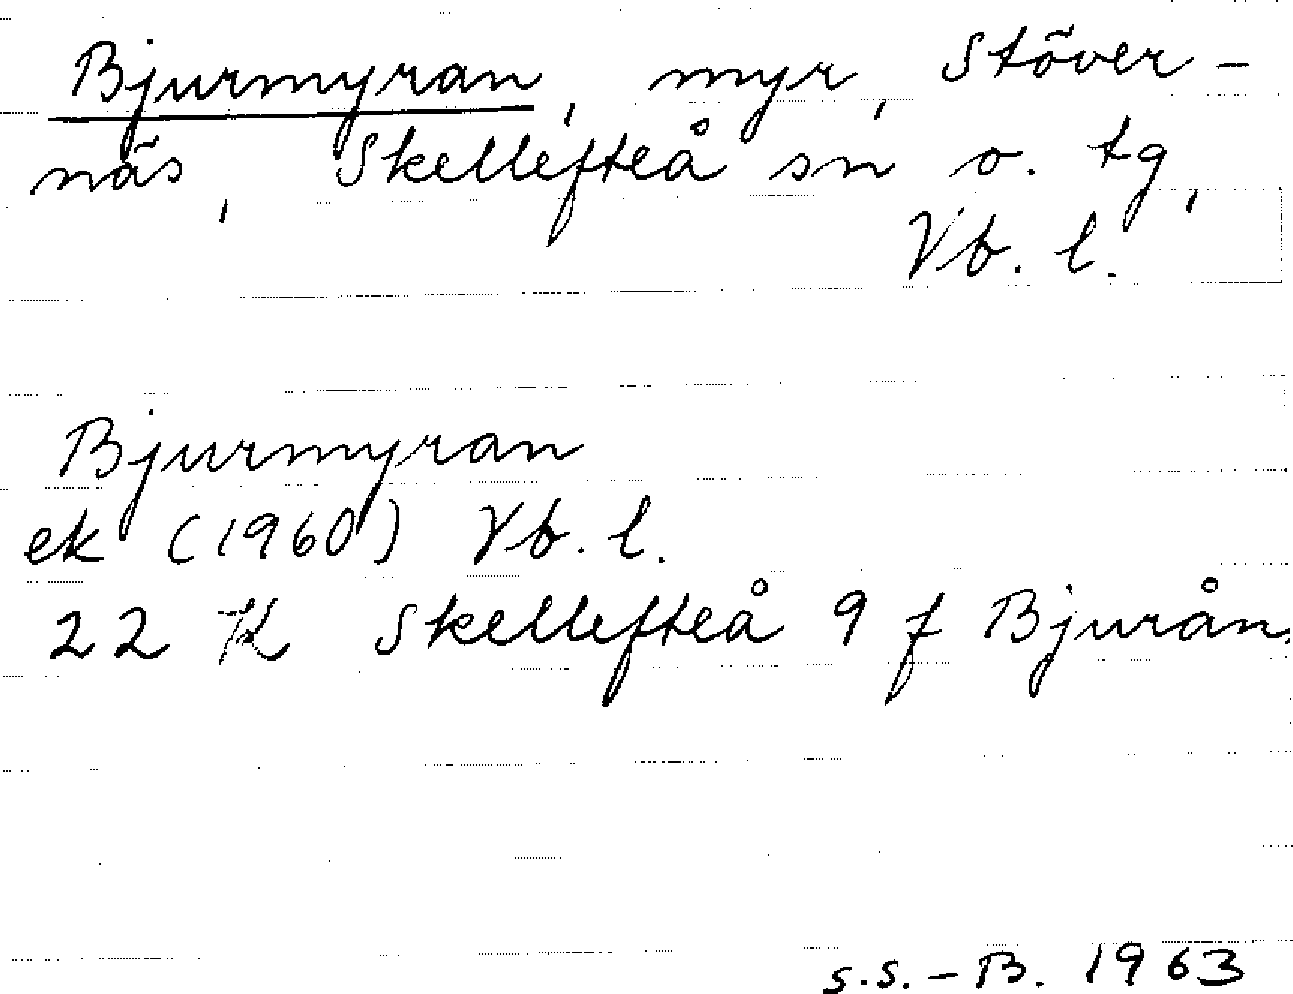 Bjurmyran, myr, Stöver-
näs, Skellefteå sn o. tg,
Vb. l.
Bjurmyran
ek (1960) Vb. l.
22 K Skellefteå 9 f Bjurån.
S.S.-B. 1963